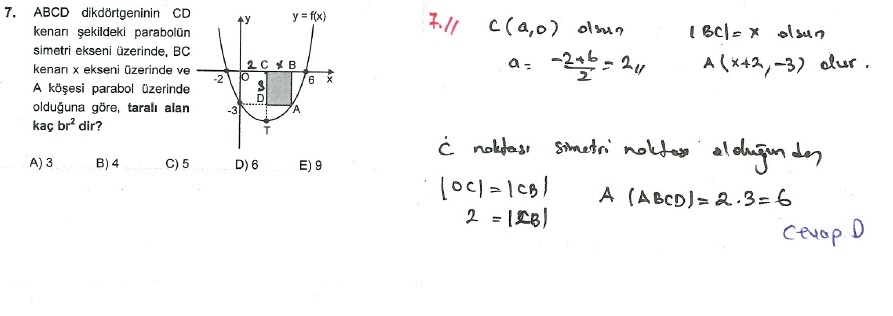 7. ABCD dikdörtgeninin CD
kenarı şekildeki parabolün
simetri ekseni üzerinde, BC
kenarı x ekseni üzerinde ve
A köşesi parabol üzerinde
olduğuna göre, taralı alan
kaç br² dir?
y y = f(x)
2 C x B
-2 O 6 x
3
D
-3 A
T
A) 3 B) 4 C) 5 D) 6 E) 9
7.// C(a,0) olsun |BC|= x olsun
a= -2+6/2 = 2// A(x+2,-3) olur.
C noktası simetri noktası olduğundan
|OC|=|CB| A(ABCD)= 2.3=6
2 = |CB|
Cevap D